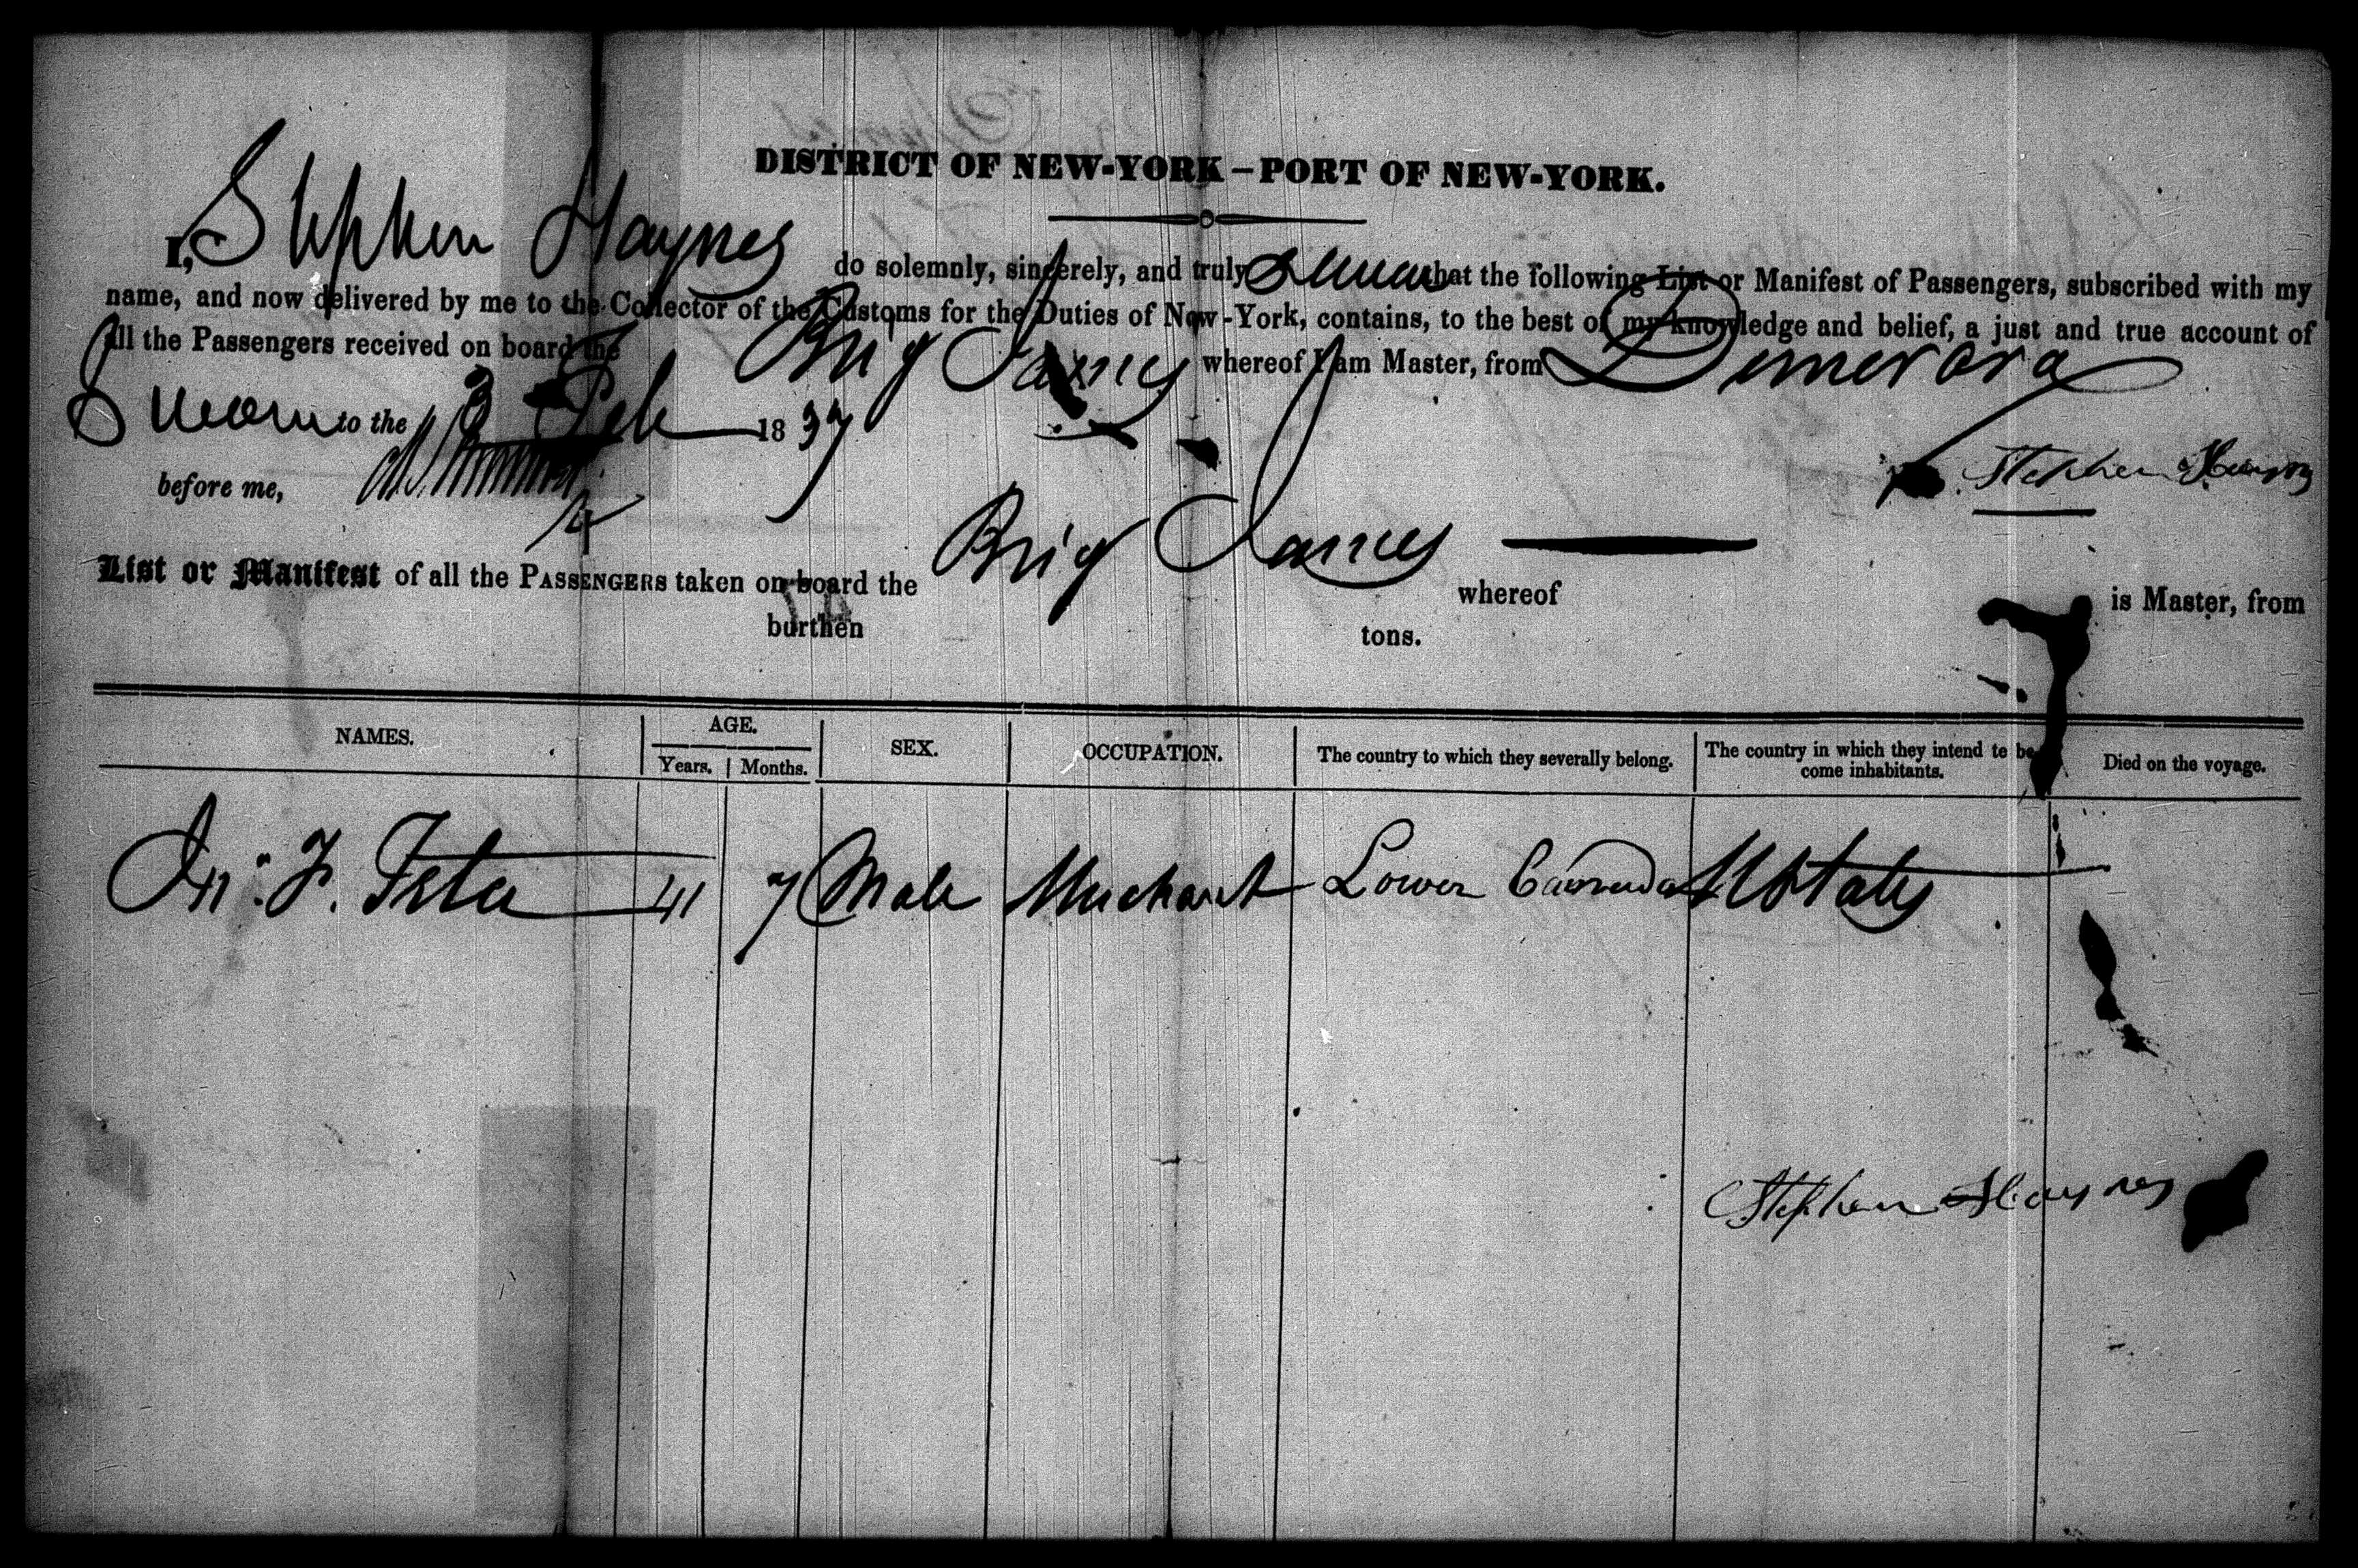 DISTRICT OF NEW-YORK – PORT OF NEW-YORK.
I, Stephen Haynes do solemnly, sincerely, and truly swear that the following List or Manifest of Passengers, subscribed with my
name, and now delivered by me to the Collector of the Customs for the Duties of New-York, contains, to the best of my knowledge and belief, a just and true account of
all the Passengers received on board the Brig James whereof I am Master, from Demerara
Sworn to the 3 Feb 1837
Stephen Haynes
before me,
List or Manifest of all the PASSENGERS taken on board the Brig James whereof is Master, from
burthen tons.
NAMES. AGE. SEX. OCCUPATION. The country to which they severally belong. The country in which they intend te be- Died on the voyage.
Years. Months. come inhabitants.
Jn: F. 41 7 Male Merchant Lower Cannada U States
Stephen Haynes